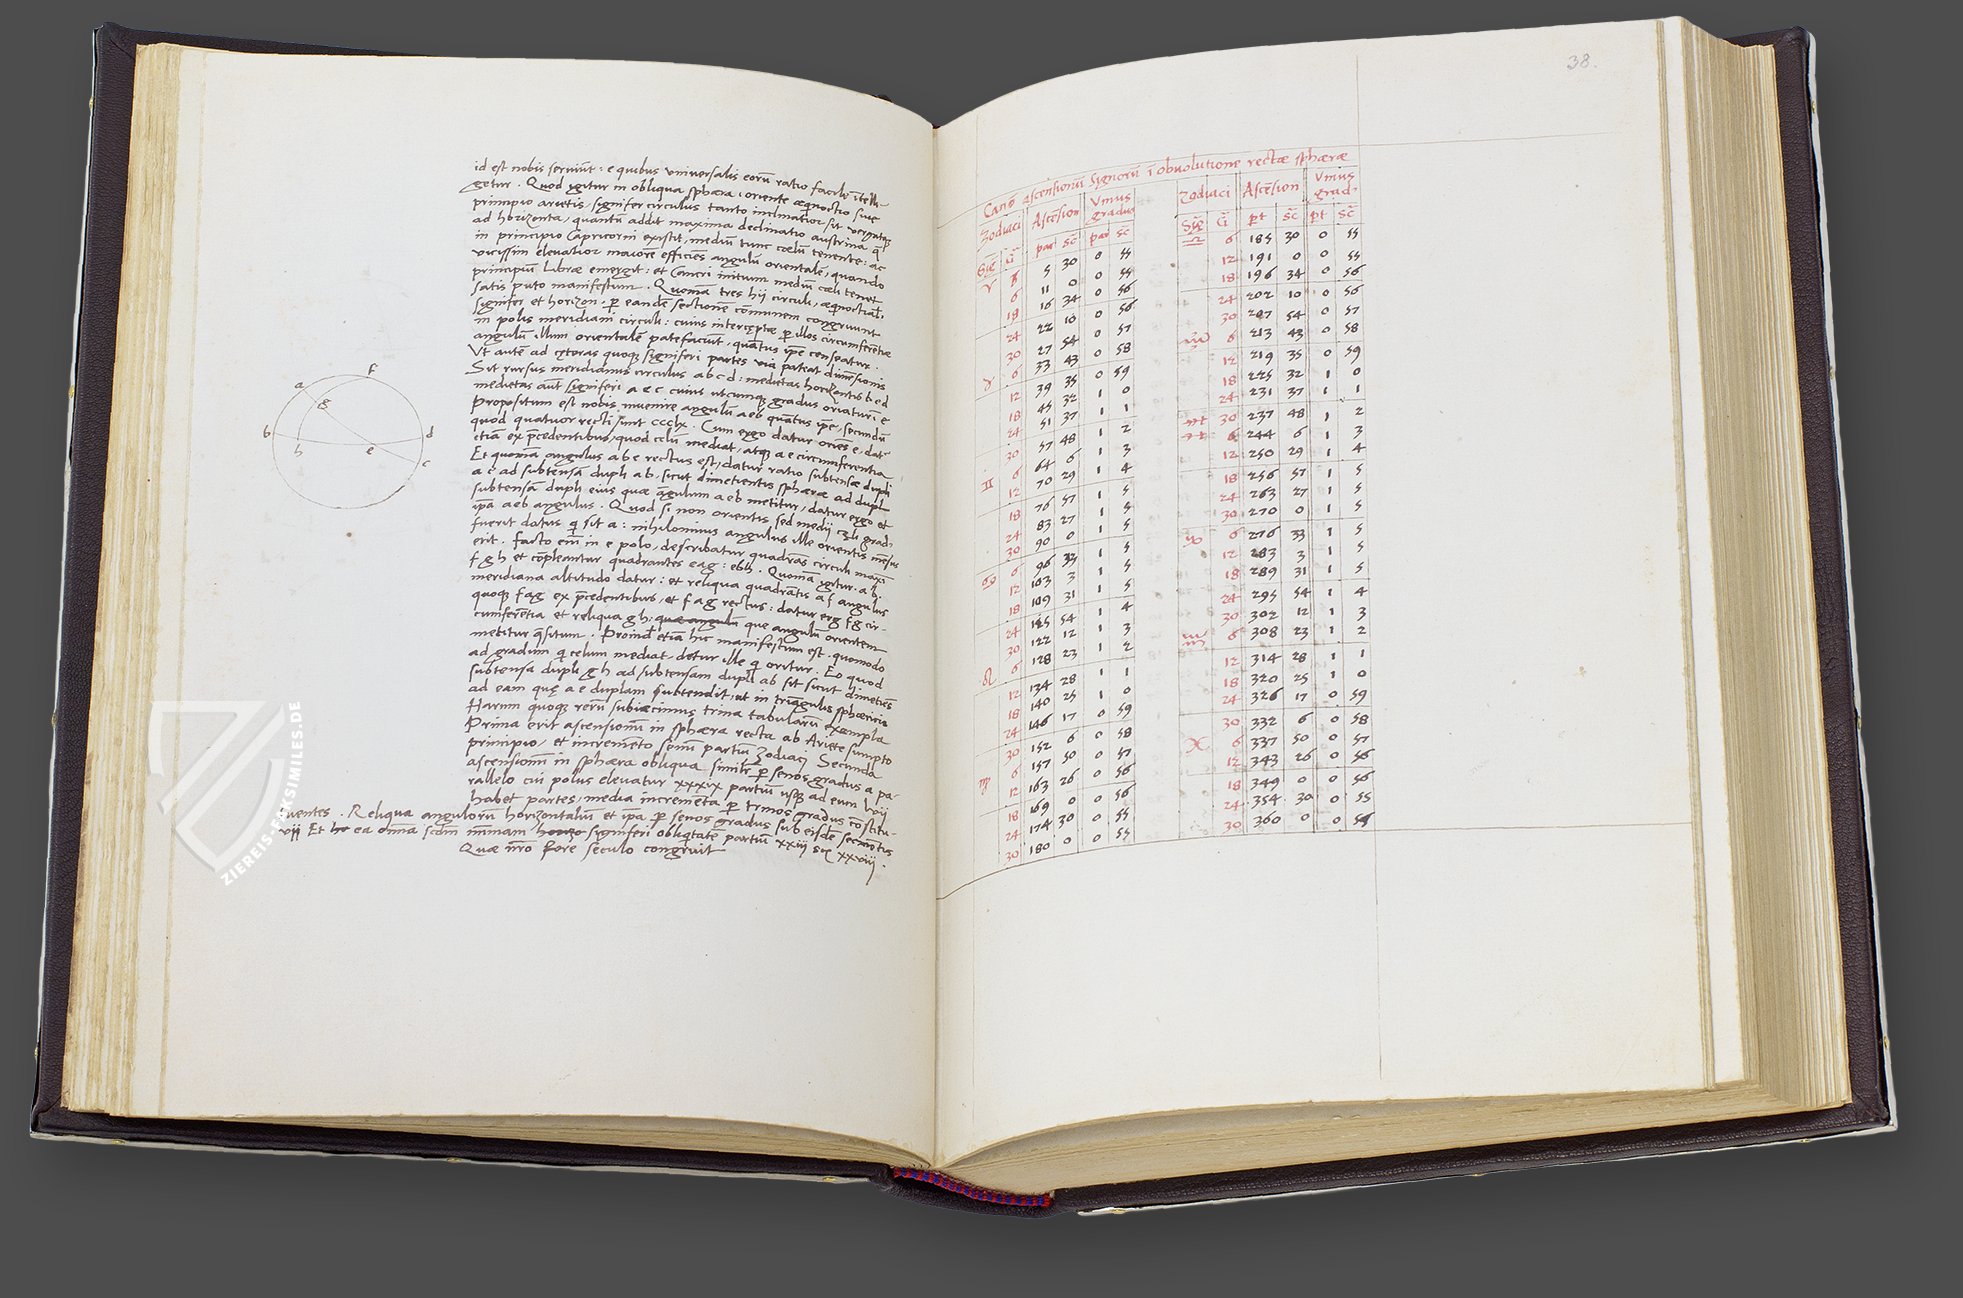 id est nobis serviunt: e quibus universalis eorū ratio facile ītelli-
getur. Quod igitur in obliqua sphæra, oriente æquinoctio sive
principio arietis, signifer circulus tanto inclinatior sit
ad horizonta, quantū addit maxima declinatio austrina q̄
in principio Capricorni existit, mediū tunc cœlū tenente: ac
vicissim elevatior maiorē efficiēs angulū orientalē, quando
principiū Libræ emergit: et Cancri initium mediū cœli tenet
satis puto manifestum. Quoniā tres hii circuli, æquinoctialis
signifer et horizon. p eandē sectionē cōmunem congruunt
in polis meridiani circuli: cuius interceptæ p illos circumferētiæ
angulū illum orientalē patefaciūt, quātus ipe censeatur.
Ut autē ad ceteras quoque signiferi partes via pateat dimēsionis
Sit rursus meridianus circulus a b c d: medietas horizontis b e d
medietas aūt signiferi a e c cuius utcumque gradus oriatur ī e
Propositum est nobis invenire angulū a e b quātus ipe, secundū
quod quatuor recti sunt ccclx. Cum ergo datur oriēs e, dat
etiā ex p̄cedentibus, quod cœlū mediat, atque a e circumferentia
Et quoniā angulus a b e rectus est, datur ratio subtensæ dupli
a e ad subtensā dupli a b. sicut dimetientis sphæræ ad dupli
subtensā dupli eius quæ āgulum a e b metitur, datur ergo et
ip̄a a e b angulus. Quod si non orientis sed medii cæli grad,
fuerit datus q sit a: nihilominus angulus ille orientis mēsus
erit. facto em̄ in e polo, describatur quadrās circuli maxi
f g h et cōpleantur quadrantes e a g: e b h. Quoniā igitur a b
meridiana altitudo datur: et reliqua quadrātis a f angulus
quoque f a g ex p̄cedentibus, et f g a rectus: datur erg f g cir-
cumferētia et reliqua g h, quæ angulū que angulū orientem
metitur q̄situm. Proind etiā hic manifestum est. quomodo
ad gradum q celum mediat, detur ille q oritur. Eo quod
subtensa dupli g h ad subtensam dupli a b sit sicut dimetiēs
ad eam quę a e duplam subtendit, ut in triāgulis sphæricis
Harum quoque rerū subiecimus trina tabularū exempla
Prima erit ascensionū in sphæra recta ab Ariete sumpto
principio, et incremēto senū partiū Zodiaci Secunda
ascensionū in sphæra obliqua similr p senos gradus a pa-
rallelo cui polus elevatur xxxix partiū usque ad eum lvii
habet partes, media incremēta p trinos gradus cōstitu-
uentes. Reliqua angulorū horizontaliū et ip̄a p senos gradus sub eisdē secmētis
vii Et he ea omnia scdm minimam signiferi obliqtatē partiū xxiii scr xxviii.
Quæ nr̄o fore seculo congruit
f
a
g
b
d
h
e
c
38.
Canō ascensionū Signorū ī obvolutione rectæ sphæræ
Zodiaci Ascēsion Vnius gradus Zodiaci Ascēsion Vnius grad,
Sig̃ G̃ par sc̃ par sc Sig̃ G̃ pt sc̃ pt sc̃
♈ 6 5 30 0 55 ♎ 6 185 30 0 55
6 11 0 0 55 12 191 0 0 55
18 16 34 0 56 18 196 34 0 56
24 22 10 0 56 24 202 10 0 56
30 27 54 0 57 30 207 54 0 57
♉ 6 33 43 0 58 ♏ 6 213 43 0 58
12 39 35 0 59 12 219 35 0 59
18 45 32 1 0 18 225 32 1 0
24 51 37 1 1 24 231 37 1 1
30 57 48 1 2 ♐ 30 237 48 1 2
♊ 6 64 6 1 3 ♐ 6 244 6 1 3
12 70 29 1 4 12 250 29 1 4
18 76 57 1 5 18 256 57 1 5
24 83 27 1 5 24 263 27 1 5
30 90 0 1 5 30 270 0 1 5
♋ 6 96 33 1 5 ♑ 6 276 33 1 5
12 103 3 1 5 12 283 3 1 5
18 109 31 1 5 18 289 31 1 5
24 115 54 1 4 24 295 54 1 4
30 122 12 1 3 30 302 12 1 3
♌ 6 128 23 1 2 ♒ 6 308 23 1 2
12 134 28 1 1 12 314 28 1 1
18 140 25 1 0 18 320 25 1 0
24 146 17 0 59 24 326 17 0 59
30 152 6 0 58 30 332 6 0 58
♍ 6 157 50 0 57 ♓ 6 337 50 0 57
12 163 26 0 56 12 343 26 0 56
18 169 0 0 56 18 349 0 0 56
24 174 30 0 55 24 354 30 0 55
30 180 0 0 55 30 360 0 0 55
ZIEREIS-FAKSIMILES.DE